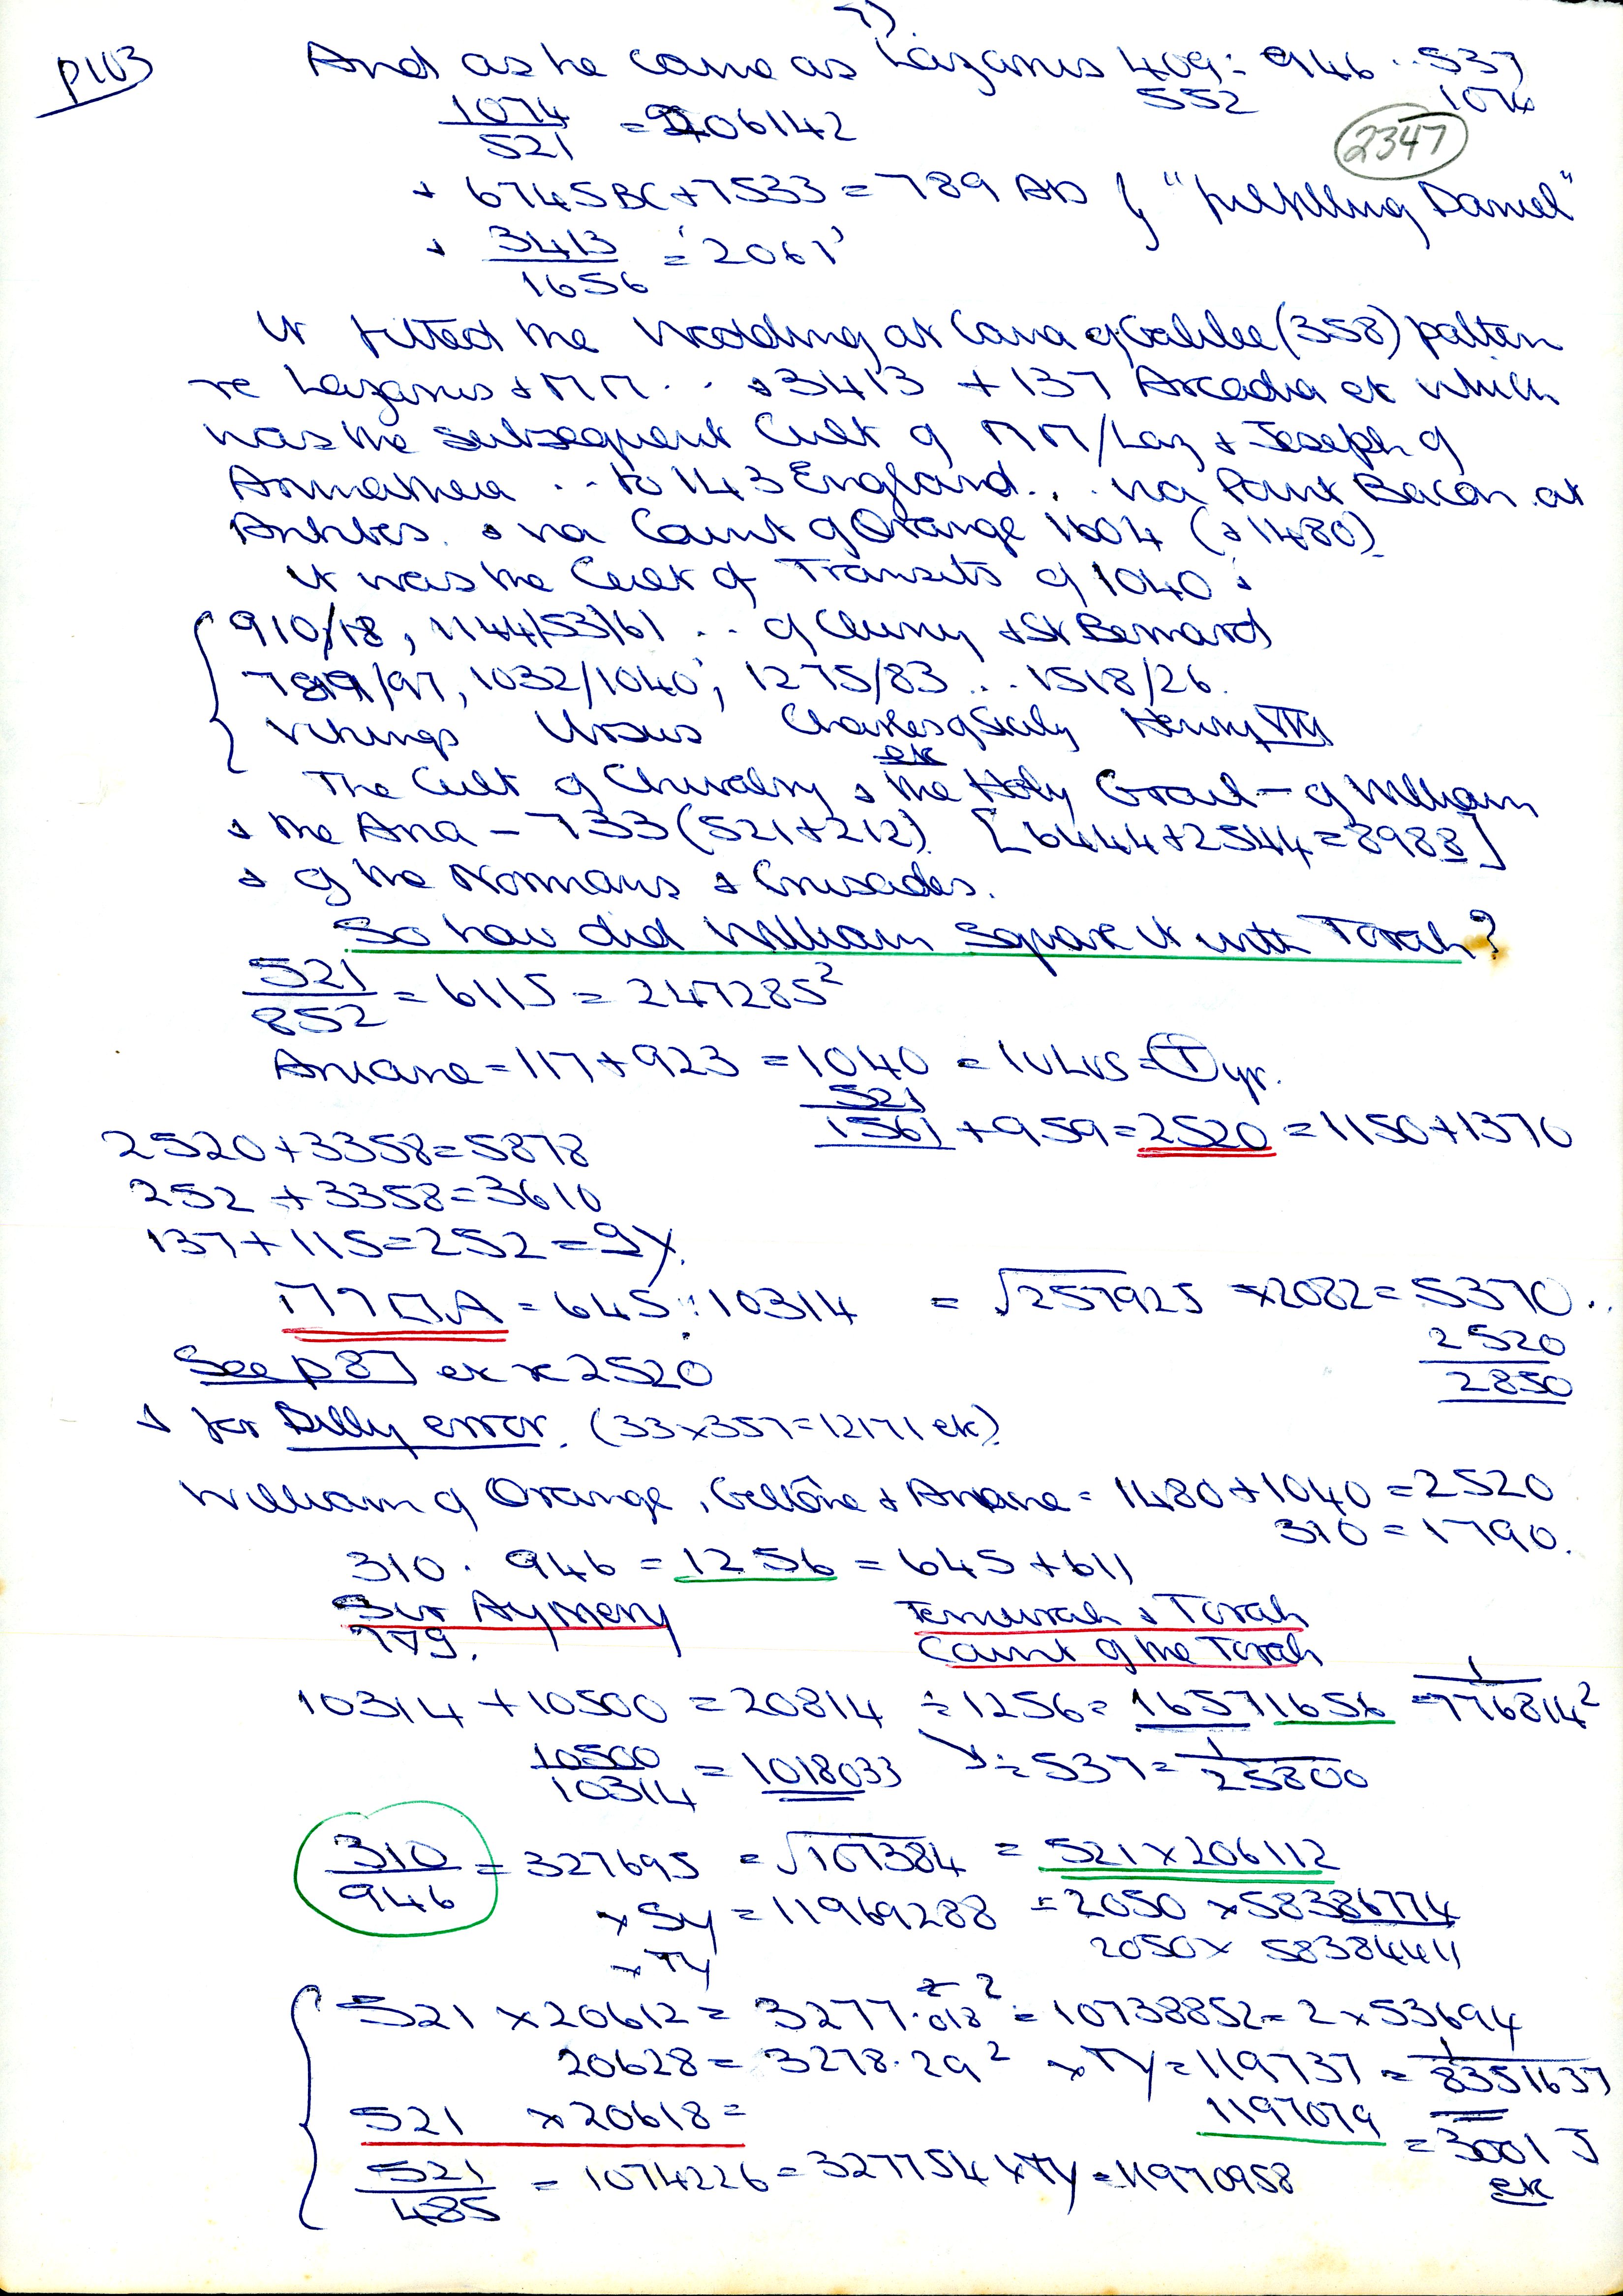 7)
p103 And as he came as Lazarus 409 = 946 .. 537
552 1074
1074/521 = 206142
(2347)
+ 6745BC + 7533 = 789 AD } "fulfilling Daniel"
+ 3413/1656 = '2061'
It fitted the Wedding at Cana of Galilee (358) pattern
re Lazarus + MM .. + 3413 + 137 Arcadia ex which
was the subsequent Cult of MM/Laz + Joseph of
Arimathea .. to 143 England .. via Paint Bacon at
Antibes. + via Count of Orange 1604 (+ 1480).
It was the Cult of Transits of 1040 +
910/18, 1144/53/61 .. of Cluny + St Bernard
789/97, 1032/1040, 1275/83 .. 1518/26.
Vikings Ursus Charles of Sicily Henry VIII
ex
The Cult of Chivalry + the Holy Grail – of William
+ the Ana – 733 (521+212). [6444+2544=8988]
+ of the Normans + Crusades.
So how did William square it with Torah?
521/852 = 6115 = 247285²
Aniane = 117 + 923 = 1040 = 10 Lus = (T) yr.
521
1561 + 959 = 2520 = 1150 + 1370
2520 + 3358 = 5878
252 + 3358 = 3610
137 + 115 = 252 = 9Y.
= 645 : 10314 = √257925 x2082 = 5370 ..
2520
2850
See p87 ex re 2520
+ for Billy error. (33x357=12171 ex).
William of Orange, Gellône + Aniane = 1480 + 1040 = 2520
310 = 1790.
310 . 946 = 1256 = 645 + 611
Sir Aymery Temurah + Torah
779. Count of the Torah
10314 + 10500 = 20814 ÷ 1256 = 16571656 = 1/776814²
10500/10314 = 1018033 ÷ 537 = 1/25800
310/946 = 327695 = √107384 = 521 x 206112
x SY = 11969288 = 2050 x 58386774
x TY 2050 x 58384411
521 x 20612 = 3277.018² = 10738852 = 2 x 53694
20628 = 3278.29² x TY = 119737 = 1/8351637
521 x 20618 = 1197079 = 3001 J
ex
521/485 = 1074226 = 327754 x TY = 11970958